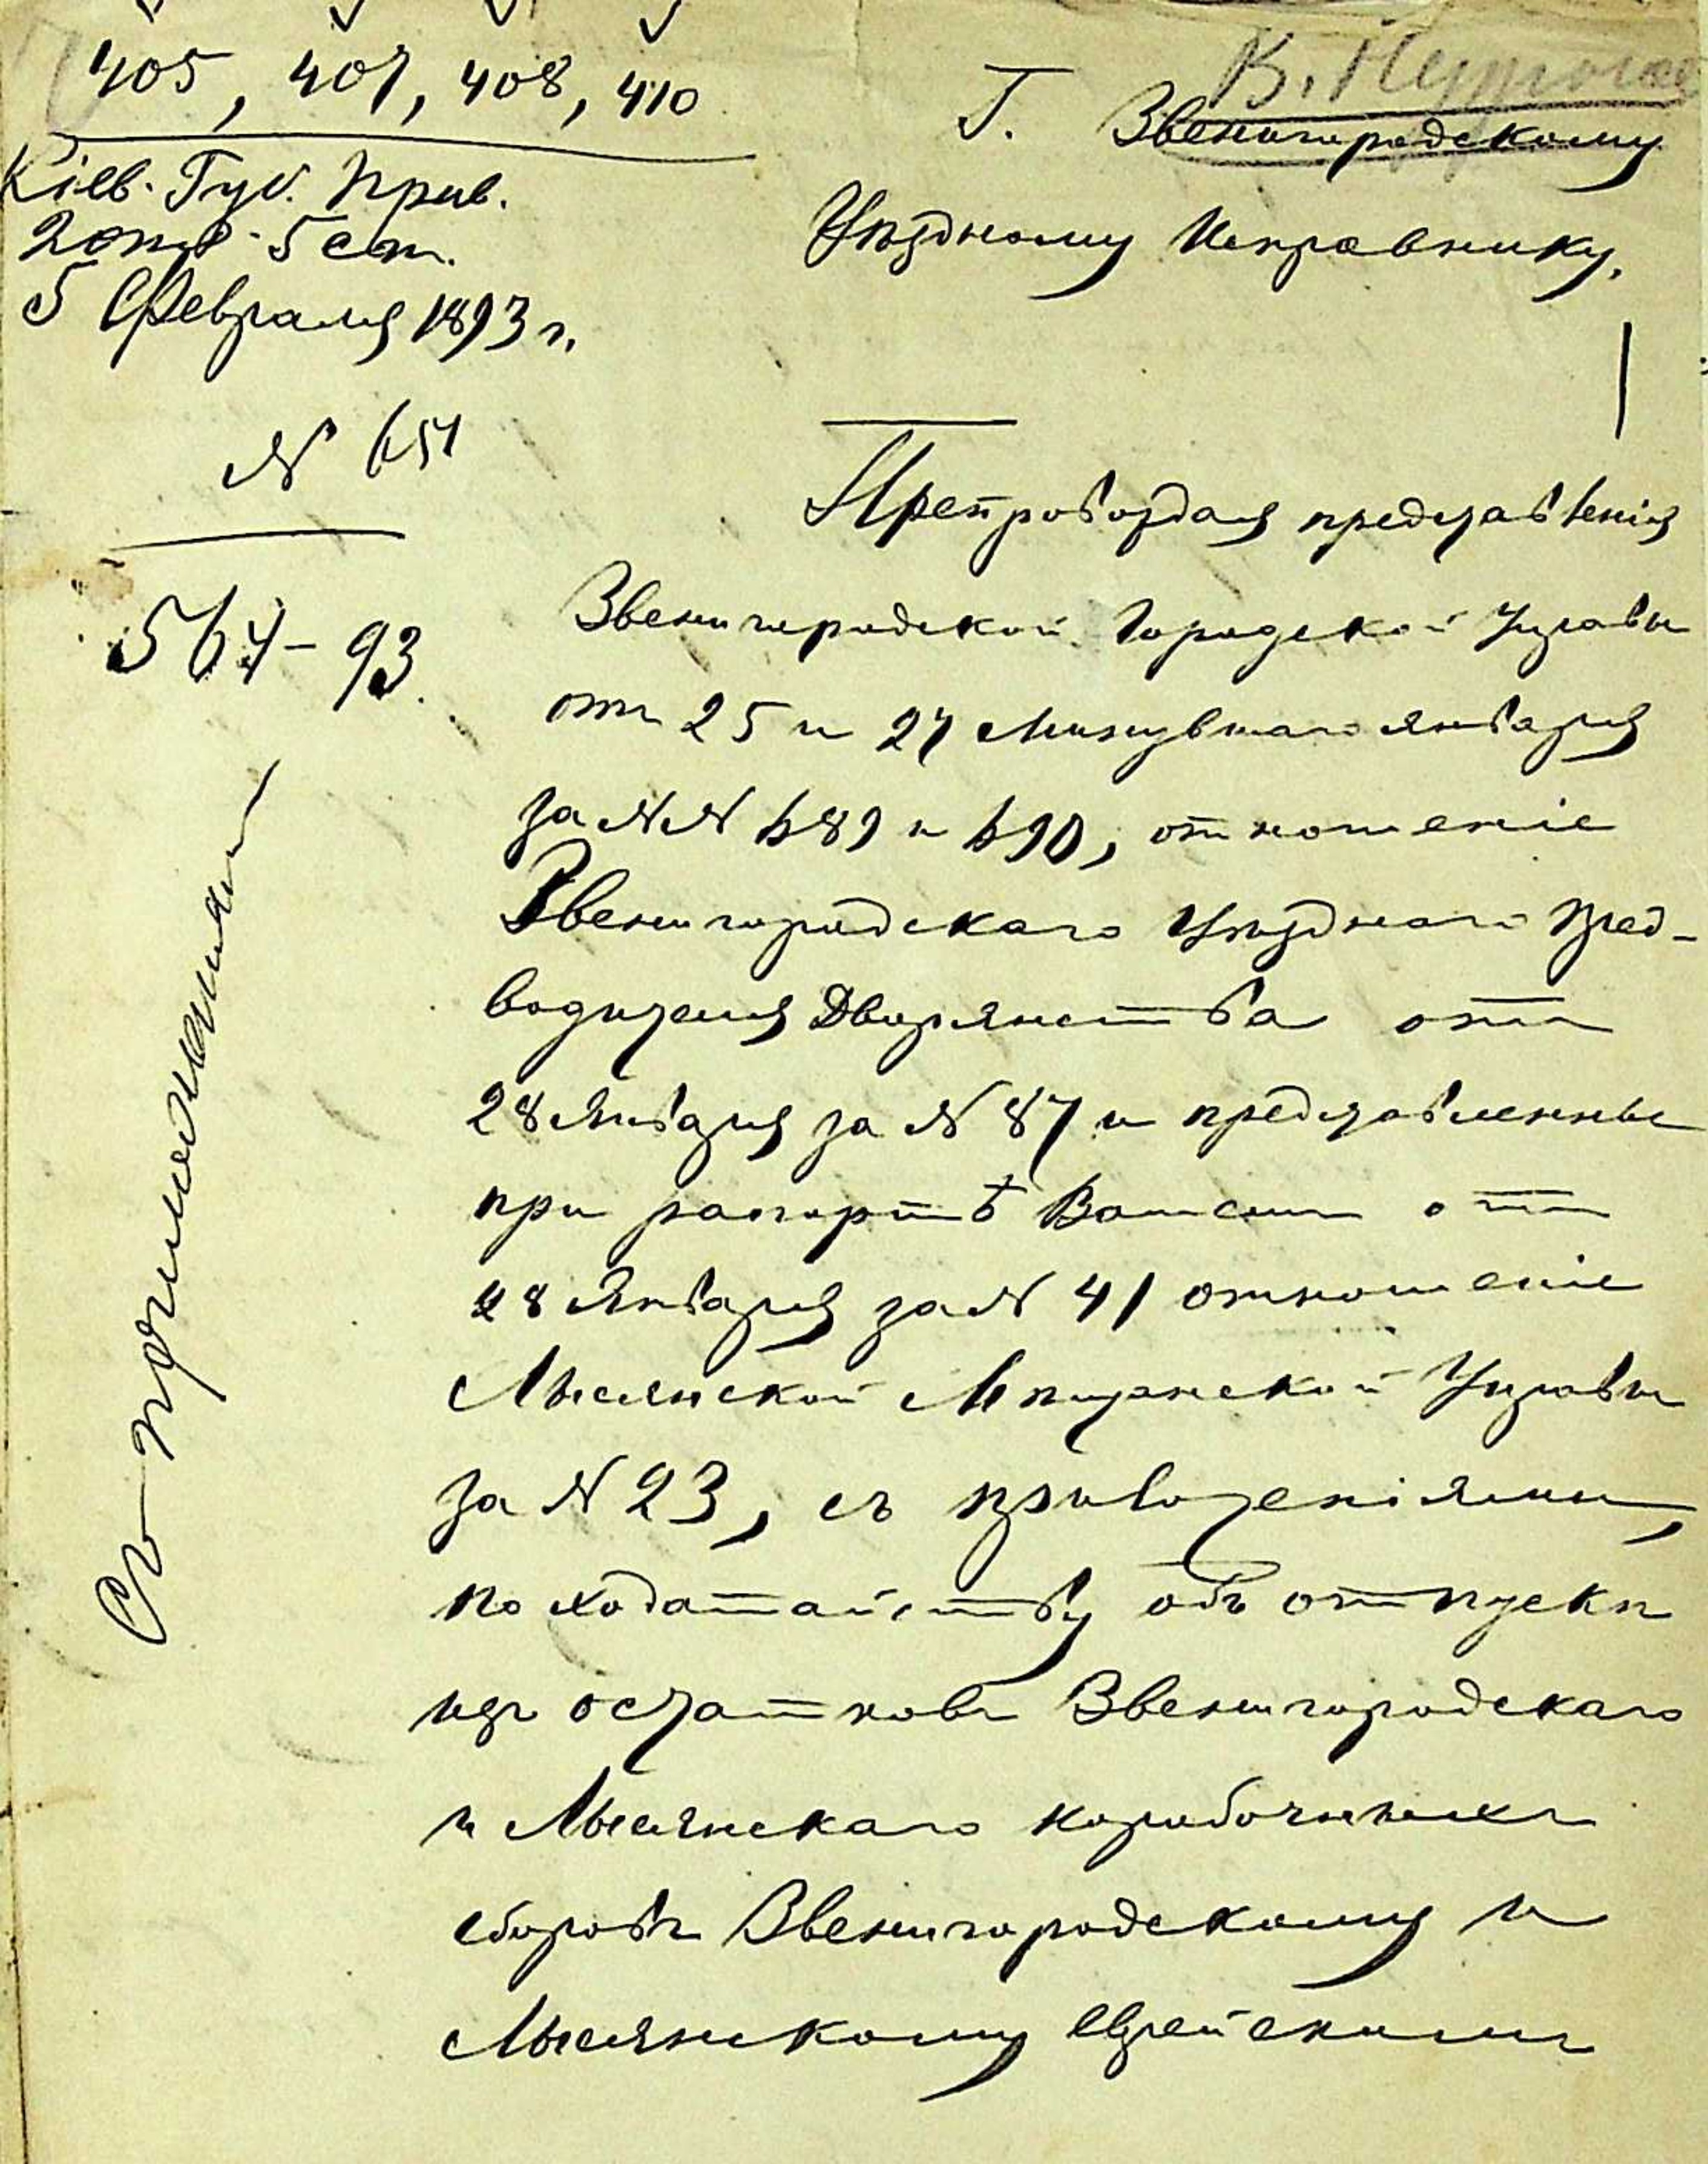 405, 407, 408, 410
Кіев. Губ. Прав.
2 отд. 5 ст.
5 Февраля 1893 г.
N 651
564 - 93.
Съ приложеніями
Г. Звенигородскому
Уѣздному Исправнику.
Препровождая представленія
Звенигородской Городской Управы
отъ 25 и 27 минувшаго января
за NN 689 и 690, отношеніе
Звенигородскаго Уѣзднаго Пред-
водителя Дворянства отъ
28 Января за N 87 и представленные
при рапортѣ Вашемъ отъ
28 Января за N 41 отношеніе
Лысянской Мѣщанской Управы
за N 23, съ приложеніями,
по ходатайству объ отпускѣ
изъ остатковъ Звенигородскаго
и Лысянскаго коробочныхъ
сборовъ Звенигородскому и
Лысянскому еврейскимъ